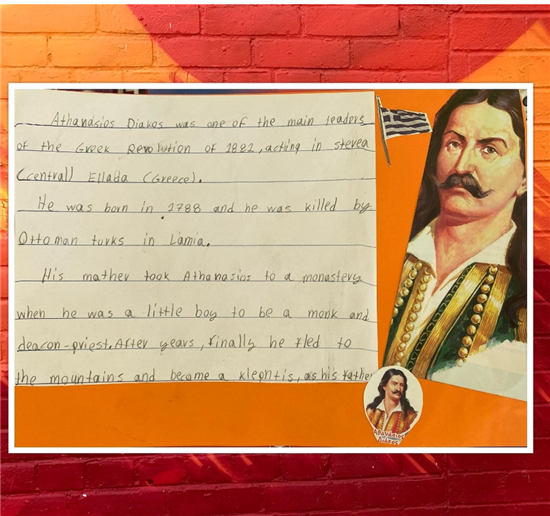 Athanasios Diakos was one of the main leaders
of the Greek Revolution of 1821, acting in sterea
(central) Ellada (Greece).
He was born in 1788 and he was killed by
Ottoman turks in Lamia.
His mather took Athanasios to a monastery
when he was a little boy to be a monk and
deacon-priest. After years, finally he fled to
the mountains and became a klephtis, as his father
ΑΘΑΝΑΣΙΟΣ
ΔΙΑΚΟΣ